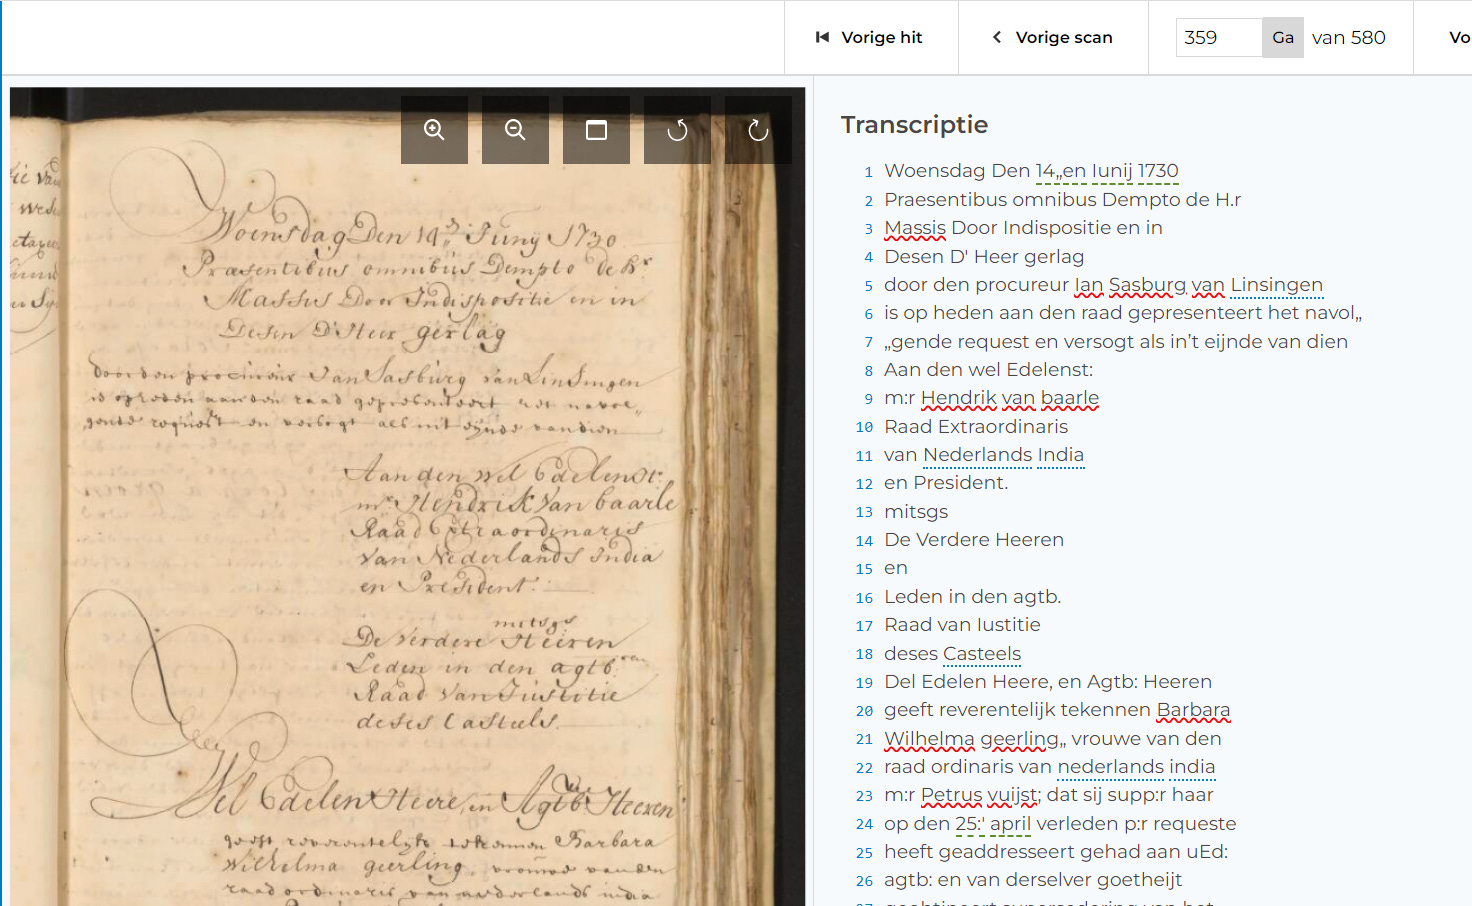 Vorige hit
Vorige scan
359 Ga van 580
Vo
Woensdag Den 14 Junij 1730
Præsentibus omnibus Dempto de Hr
Massis Door Indispositie en in
Desen D'Heer gerlag
door den procureur Jan Sasburg van Linsingen
is op heden aan den raad gepresenteert het navol„
gende request en versogt als int eijnde van dien
Aan den wel Edelenst:
mr Hendrik van baarle
Raad Extraordinaris
van Nederlands India
en President.
mitsgs
De Verdere Heeren
Leden in den agtb:
Raad van Justitie
deses Casteels.
Wel Edelen Heere, en Agtb: Heeren
geeft reverentelijk tekennen Barbara
Wilhelma geerling, vrouwe van den
raad ordinaris van nederlands india
Transcriptie
1 Woensdag Den 14„en Iunij 1730
2 Praesentibus omnibus Dempto de H.r
3 Massis Door Indispositie en in
4 Desen D' Heer gerlag
5 door den procureur Ian Sasburg van Linsingen
6 is op heden aan den raad gepresenteert het navol„
7 „gende request en versogt als in’t eijnde van dien
8 Aan den wel Edelenst:
9 m:r Hendrik van baarle
10 Raad Extraordinaris
11 van Nederlands India
12 en President.
13 mitsgs
14 De Verdere Heeren
15 en
16 Leden in den agtb.
17 Raad van Iustitie
18 deses Casteels
19 Del Edelen Heere, en Agtb: Heeren
20 geeft reverentelijk tekennen Barbara
21 Wilhelma geerling„ vrouwe van den
22 raad ordinaris van nederlands india
23 m:r Petrus vuijst; dat sij supp:r haar
24 op den 25:' april verleden p:r requeste
25 heeft geaddresseert gehad aan uEd:
26 agtb: en van derselver goetheijt